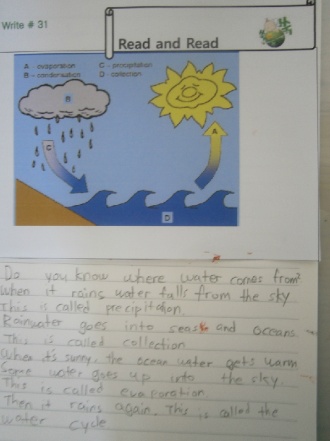 Write # 31
Read and Read
A - evaporation C - precipitation
B - condensation D - collection
B
A
C
D
Do you know where water comes from?
When it rains water falls from the sky
This is called precipitation.
Rainwater goes into seas and oceans
This is called collection
When it's sunny, the ocean water gets warm
Some water goes up into the sky.
This is called evaporation
Then it rains again. This is called the
water cycle